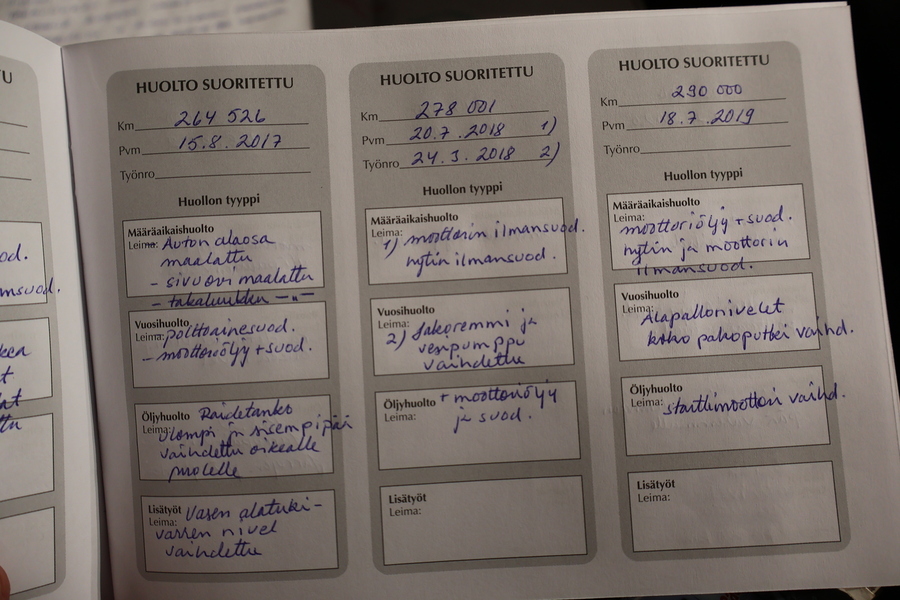 U
od.
msuod.
HUOLTO SUORITETTU
Km 264 526
Pvm 15.8.2017
Työnro
Huollon tyyppi
Määräaikaishuolto
Leima: Auton alaosa
maalattu
- sivuovi maalattu
- takaluukku -"-
Vuosihuolto
Leima: polttoainesuod.
- moottoriöljy + suod.
Öljyhuolto Raidetanko
Leima: ulompi ja sisempi pää
vaihdettu oikealle
puolelle
Lisätyöt Vasen alatuki-
Leima: varren nivel
vaihdettu
HUOLTO SUORITETTU
Km 278 001
Pvm 20.7.2018 1)
Työnro 24.3.2018 2)
Huollon tyyppi
Määräaikaishuolto
Leima: 1) moottorin ilmansuod.
hytin ilmansuod.
Vuosihuolto
Leima: 2) Jakoremmi ja
vesipumppu
vaihdettu
Öljyhuolto + moottoriöljy
Leima: ja suod.
Lisätyöt
Leima:
HUOLTO SUORITETTU
Km 290 000
Pvm 18.7.2019
Työnro
Huollon tyyppi
Määräaikaishuolto
Leima: moottoriöljy + suod.
hytin ja moottorin
ilmansuod.
Vuosihuolto
Leima: Alapallonivelet
koko pakoputki vaihd.
Öljyhuolto
Leima: starttimoottori vaihd.
Lisätyöt
Leima: